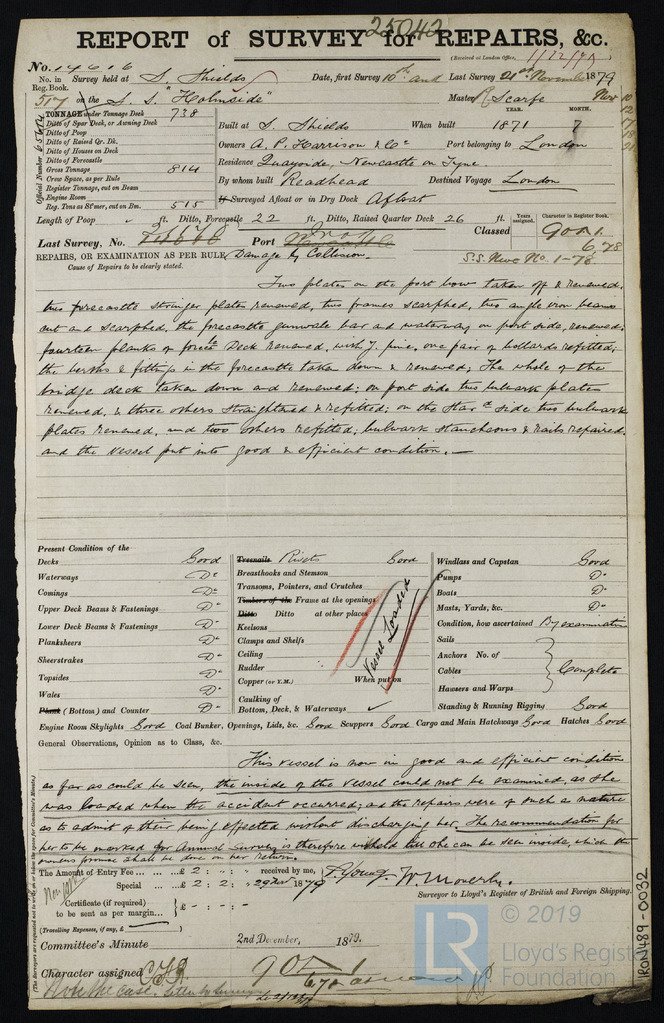 25042
REPORT of SURVEY for REPAIRS, &c.
(Received at London Office,
No. 14616
No. in Reg. Book. Survey held at S. Shields Date, first Survey 10th and Last Survey 21st November 1879
517 on the S.S. "Holmside" Master Scarfe Nov 10 12 17 18 21
Official Number
TONNAGE under Tonnage Deck 738
Ditto of Spar Deck, or Awning Deck
Ditto of Poop
Ditto of Raised Qr. Dk.
Ditto of Houses on Deck
Ditto of Forecastle
Gross Tonnage 814
Crew Space, as per Rule
Register Tonnage, cut on Beam
Engine Room
Reg. Tons as St'mer, cut on Bm. 515
YEAR. MONTH.
Built at S. Shields When built 1871 7
Owners A. P. Harrison & Co Port belonging to London
Residence Quayside, Newcastle on Tyne.
By whom built Readhead Destined Voyage London
If Surveyed Afloat or in Dry Dock Afloat
Length of Poop ft. Ditto, Forecastle 22 ft. Ditto, Raised Quarter Deck 26 ft.
Years assigned. Character in Register Book.
Last Survey, No. Port Classed 90 A 1. 6,78
REPAIRS, OR EXAMINATION AS PER RULE, Damage by Collision. S.S. Newc No. 1-78
Cause of Repairs to be clearly stated.
Two plates on the port bow taken off & renewed,
two forecastle stringer plates renewed, two frames scarphed, two angle iron beams
cut and scarphed, the forecastle gunwale bar and waterway on port side, renewed;
fourteen planks of forecle Deck renewed, with y. pine, one pair of bollards refitted;
the berths & fittings in the forecastle taken down & renewed; The whole of the
bridge deck taken down and renewed; on port side two bulwark plates
renewed, & three others straightened & refitted; on the Starbd side two bulwark
plates renewed, and two others refitted; bulwark stancheons & rails repaired.
and the vessel put into good & efficient condition.—
Present Condition of the
Decks Good
Waterways Do
Comings Do
Upper Deck Beams & Fastenings Do
Lower Deck Beams & Fastenings Do
Planksheers Do
Sheerstrakes Do
Topsides Do
Wales Do
Plank (Bottom) and Counter Do
Treenails Rivets Good
Breasthooks and Stemson
Transoms, Pointers, and Crutches
Timbers of the Frame at the openings
Ditto Ditto at other places
Keelsons
Clamps and Shelfs
Ceiling
Rudder
Copper (or Y.M.) When put on
Caulking of Bottom, Deck, & Waterways ✓
Vessel Loaded
Windlass and Capstan Good
Pumps Do
Boats Do
Masts, Yards, &c. Do
Condition, how ascertained By examination
Sails
Anchors No. of
Cables Complete
Hawsers and Warps
Standing & Running Rigging Good
Engine Room Skylights Good Coal Bunker, Openings, Lids, &c. Good Scuppers Good Cargo and Main Hatchways Good Hatches Good
General Observations, Opinion as to Class, &c.
This vessel is now in good and efficient condition
as far as could be seen, the inside of the vessel could not be examined, as she
was loaded when the accident occurred; and the repairs were of such a nature
as to admit of their being effected without discharging her. The recommendation for
her to be marked for Annual Survey is therefore withheld till she can be seen inside, which the
owners promise shall be done on her return.
The Amount of Entry Fee ... £ 2 : " : " received by me,
Special ... £ 2 : 2 : 29 Nov 1879
T. Young. W. Moverly.
Surveyor to Lloyd's Register of British and Foreign Shipping.
Certificate (if required) £ - : - : -
to be sent as per margin...
(Travelling Expenses, if any, £
Committee's Minute 2nd December, 1879.
Character assigned 90 A 1
Note the case.
(The Surveyors are requested not to write on or below the space for Committee's Minute.)
IRON489-0032
LR © 2019
Lloyd's Register
Foundation